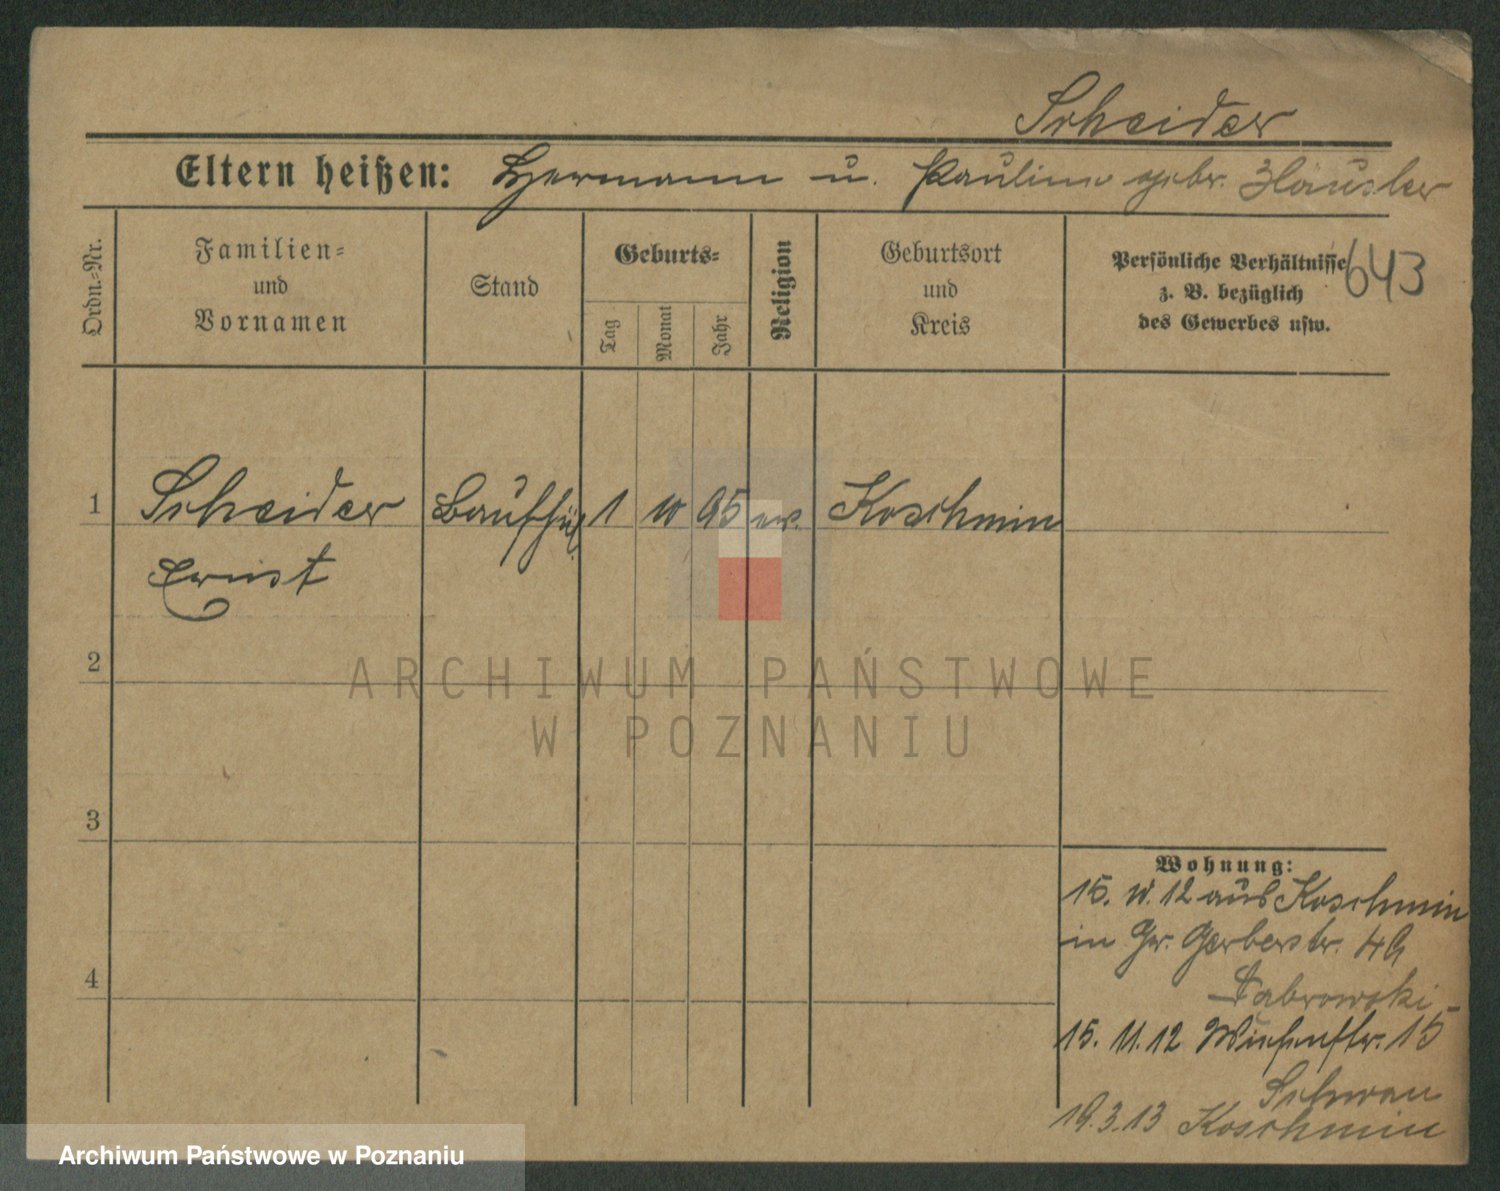 Scheider
Eltern heißen: Hermann u. Pauline gebr. Häusler
Ordn.-Nr.
Familien-
und
Vornamen
Stand
Geburts-
Tag
Monat
Jahr
Religion
Geburtsort
und
Kreis
Persönliche Verhältnisse
z. B. bezüglich
des Gewerbes usw.
643
1 Scheider 1 10 95 ev. Koschmin
Ernst
2
3
4
Wohnung:
15. 10. 12 aus Koschmin
in Gr. Gerberstr. 49
Dabrowski
15. 11. 12 Wiesenstr. 15
Schwan
19.3.13 Koschmin
ARCHIWUM PAŃSTWOWE
W POZNANIU
Archiwum Państwowe w Poznaniu